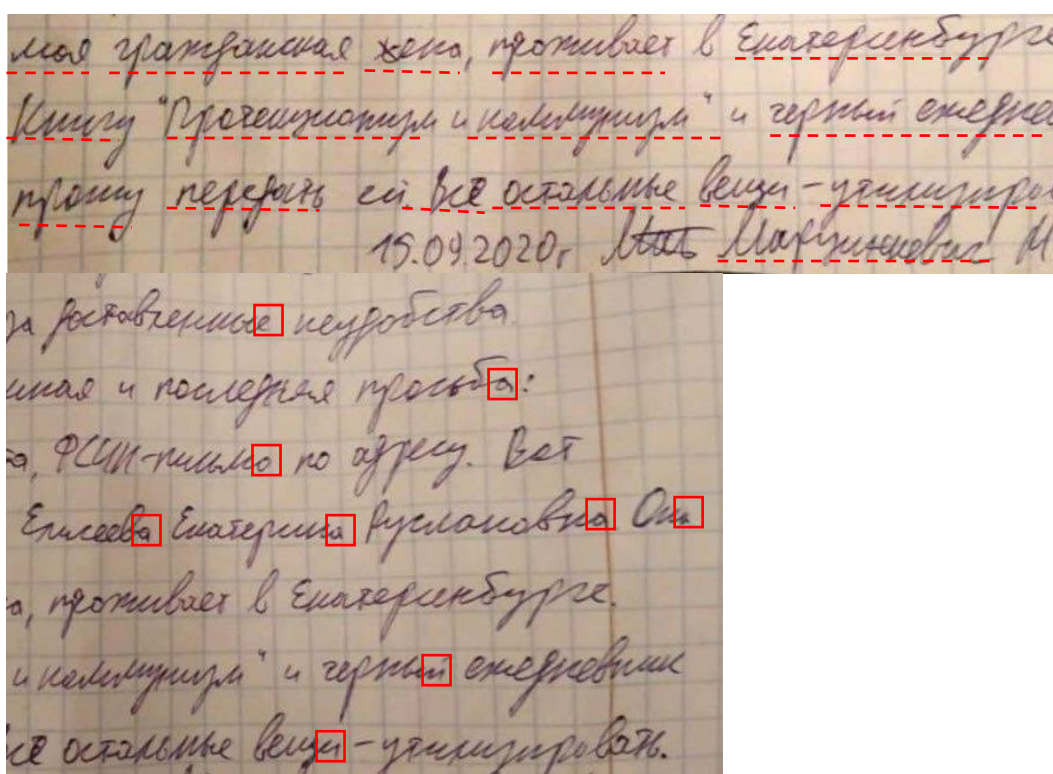 моя гражданская жена, проживает в Екатеринбурге
Книгу "Протекционизм и коммунизм" и черный ежедне
прошу передать ей. Всё остальные вещи - утилизиро
15.09.2020г Мацкевич М
за доставленные неудобства
и последняя просьба:
ФСИН-письмо по адресу. Вот
Елисеева Екатерина Руслановна Она
проживает в Екатеринбурге.
и коммунизм" и черный ежедневник
всё остальные вещи - утилизировать.